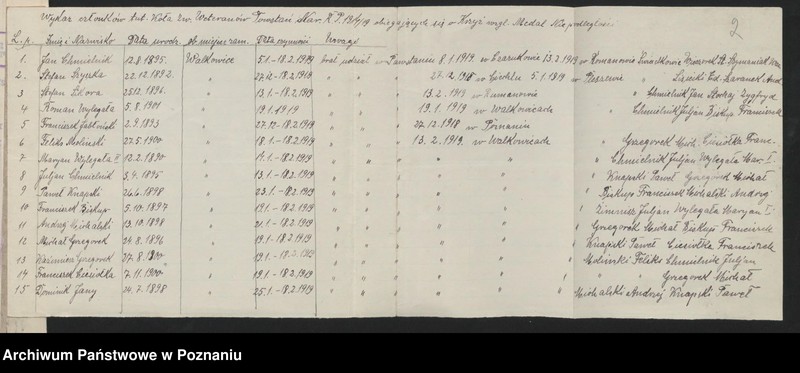 Wykaz członków tut. Koła Zw. Weteranów Powstań Nar. R.P. 19/19 ubiegających się o Krzyż wzgl. Medal Niepodległości
2
L.p. Imię i Nazwisko Data urodz. ob. miejsce zam. Data Uwagi
1. Jan Chmielnik 12.8.1895. Walkowice 5.1.-18.2.1919 brał udział w Powstaniu 8.1.1919. w Czarnkowie 13.2.1919 w Romanowie Świadkowie
2. Stefan Szynka 22.12.1892. " 27.12.-18.2.1919 " " " 27.12.1918 w 5.1.1919 w "
3 Stefan Sikora 25.12.1896. " 13.1.-18.2.1919 " " " 13.2.1919 w Rumanowie " Chmielnik Jan
4 Roman Wylegała 5.8.1901 " 19.1.1919 " " " 19.1.1919 w Walkowicach " Chmielnik Juljan Biskup Franciszek
5 Franciszek 2.9.1893 " 27.12-18.2.1919 " " " 27.12.1918 w Poznaniu
6 Feliks Moliński 27.5.1900 " 18.1.-18.2.1919 " " " 13.2.1919. w Walkowicach " Grzegorek Mich. Cieciółka Franc.
7 Maryan Wylegała I 13.2.1890 " 14.1.-18.2.1919 " " " " Chmielnik Juljan Wylegała Mar. I.
8 Juljan Chmielnik 3.4.1895 " 13.1.-18.2.1919 " " " " Knapski Paweł Grzegorek Michał
9 Paweł Knapski 26.6.1898 " 23.1.-18.2.1919 " " " " Biskup Franciszek Michalski Andrzej
10 Franciszek Biskup 5.10.1897 " 19.1-18.2.1919 " " " " Zimniak Juljan Wylegała Maryan I.
11 Andrzej Michalski 13.10.1898 " 21.1-18.2.1919 " " " " Grzegorek Michał Biskup Franciszek
12 Michał Grzegorek 24.8.1896 " 19.1.18.2.1919 " " " " Knapski Paweł Cieciółka Franciszek
13 Kazimierz Grzegorek 27.8.1900 " 19.1-18.2.1919 " " " " Moliński Feliks Chmielnik Juljan
14 Franciszek Cieciółka 7.11.1900 " 19.1-18.2.1919 " " " " " " Grzegorek Michał
15 Dominik Jany 24.7.1898 " 25.1.-18.2.1919 " " " " Michalski Andrzej Knapski Paweł
Archiwum Państwowe w Poznaniu